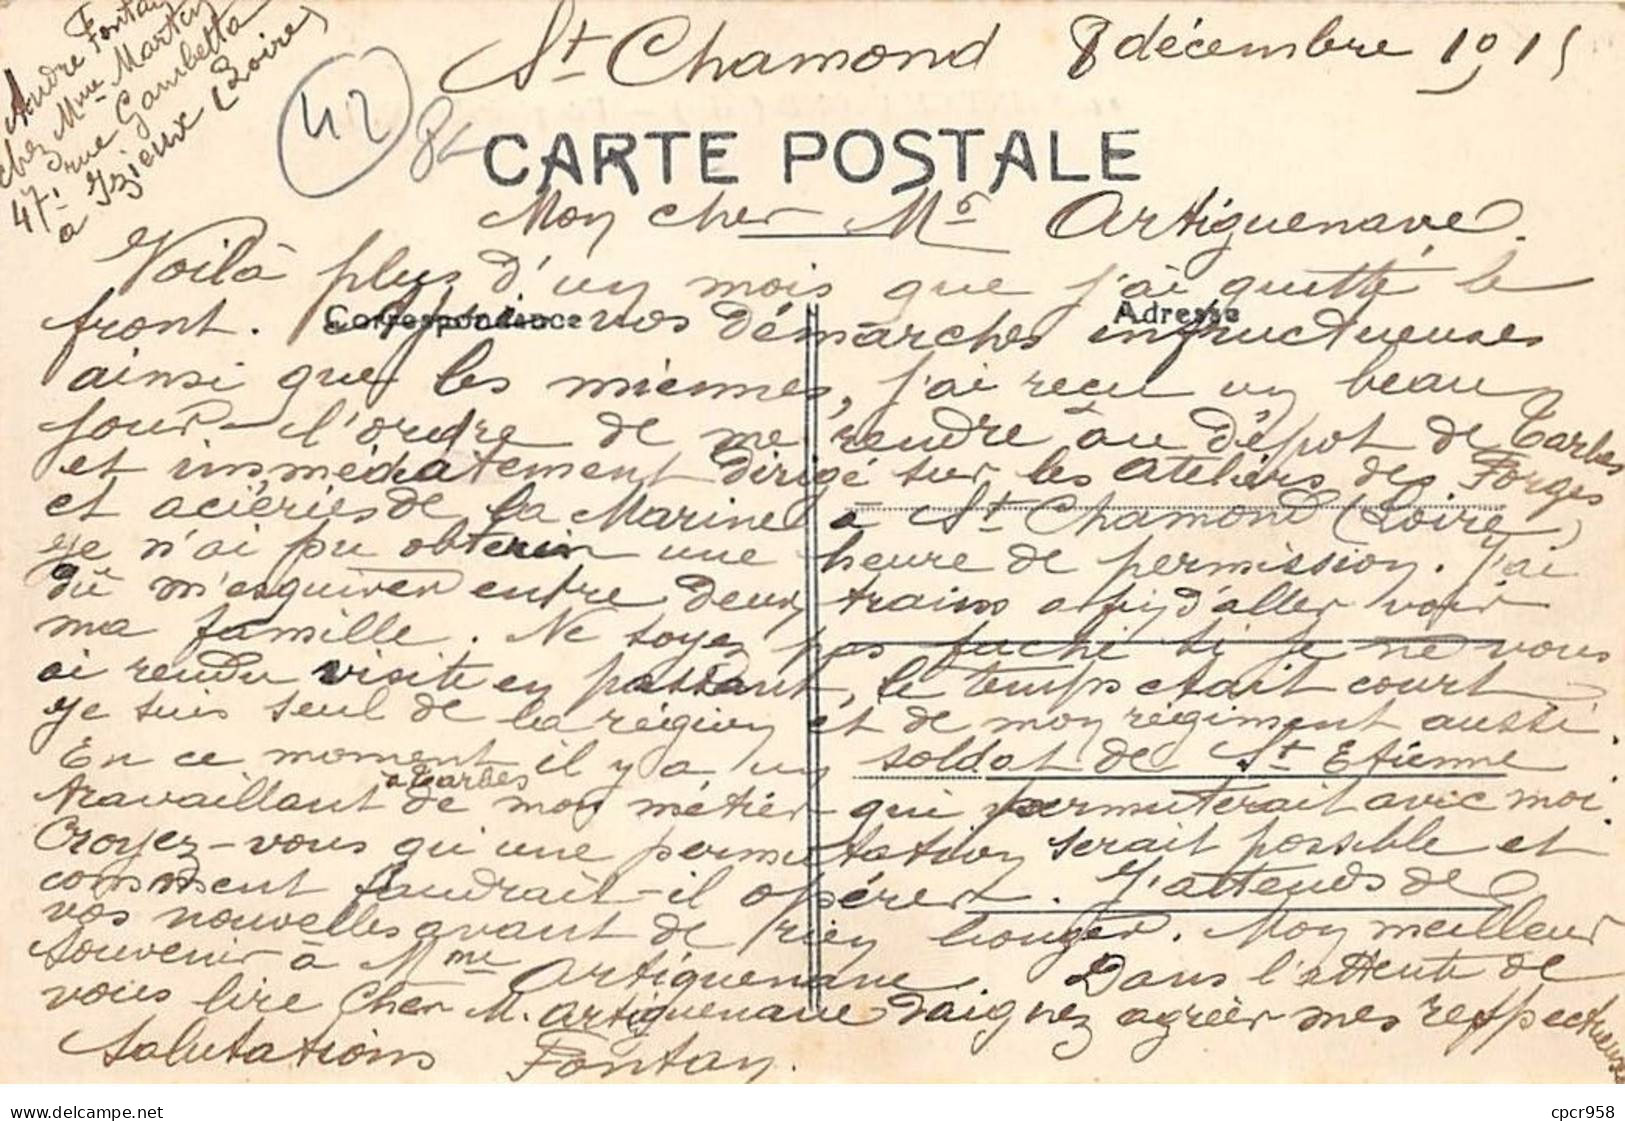 André Fontan
chez Mme Martin
47 rue Gambetta
à Izieux (Loire)
42
St Chamond 8 décembre 1915
CARTE POSTALE
Mon cher Mr Artiguenave.
Voilà plus d'un mois que j'ai quitté le
Correspondance
Adresse
front. Après vos démarches infructueuses
ainsi que les miennes, j'ai reçu un beau
jour l'ordre de me rendre au dépôt de Tarbes
et immédiatement dirigé sur les ateliers des Forges
et aciéries de la Marine à St Chamond (Loire)
Je n'ai pu obtenir une heure de permission. J'ai
dû m'esquiver entre deux trains afin d'aller voir
ma famille. Ne soyez pas fâché si je ne vous
ai rendu visite en passant, le temps était court
Je suis seul de la région et de mon régiment aussi.
En ce moment il y a un soldat de St Etienne
à Tarbes
travaillant de mon métier qui permuterait avec moi.
Croyez-vous qu'une permutation serait possible et
comment faudrait-il opérer. J'attends de
vos nouvelles avant de rien bouger. Mon meilleur
souvenir à Mme Artiguenave. Dans l'attente de
vous lire Cher M. Artiguenave daignez agréer mes respectueuses
Salutations Fontan.
delcampe.net
cpcr958